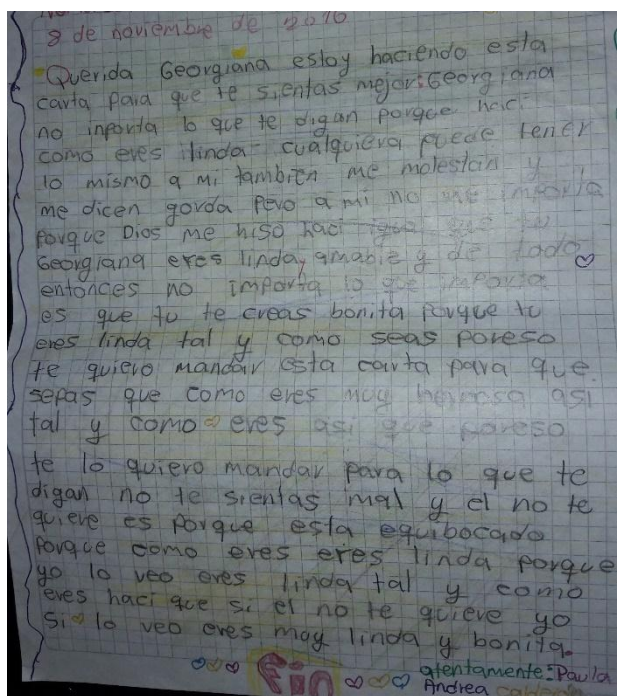 8 de noviembre de 2016
Querida Georgiana estoy haciendo esta
carta para que te sientas mejor: Georgiana
no inporta lo que te digan porque haci
como eres linda cualquiera puede tener
lo mismo a mi tambien me molestan y
me dicen gorda pero a mi no me importa
porque Dios me hiso haci igual que tu
Georgiana eres linda, amable y de todo
entonces no importa lo que importa
es que tu te creas bonita porque tu
eres linda tal y como seas poreso
te quiero mandar esta carta para que
sepas que como eres muy hermosa asi
tal y como eres asi que poreso
te lo quiero mandar para lo que te
digan no te sientas mal y el no te
quiere es porque esta equibocado
porque como eres eres linda porque
yo lo veo eres linda tal y como
eres haci que si el no te quiere yo
si lo veo eres muy linda y bonita.
Fin atentamente: Paula
Andrea